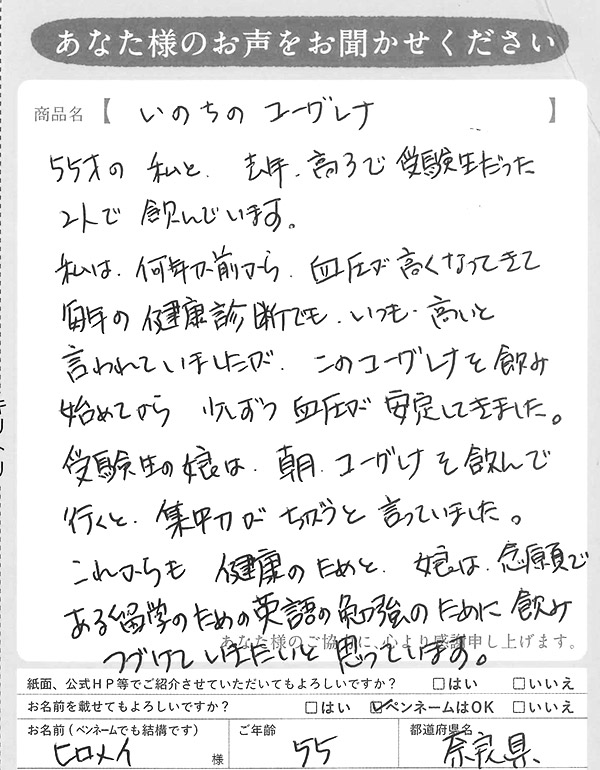 あなた様のお声をお聞かせください
商品名【 いのちの ユーグレナ 】
55才の 私と、去年、高3で 受験生だった
2人で 飲んでいます。
私は、何年か前から、血圧が 高くなってきて
毎年の 健康診断でも、いつも 高いと
言われていましたが、このユーグレナを 飲み
始めてから 少しずつ 血圧が 安定してきました。
受験生の娘は、朝、ユーグレナを飲んで
行くと、集中力が ちがうと 言っていました。
これからも 健康のためと、娘は、念願で
ある留学のための英語の勉強のために飲み
あなた様のご協力に、心より感謝申し上げます。
つづけていきたいと 思っています。
紙面、公式HP等でご紹介させていただいてもよろしいですか? □はい □いいえ
お名前を載せてもよろしいですか? □はい ☑ペンネームはOK □いいえ
お名前(ペンネームでも結構です) ご年齢 都道府県名
ヒロメイ 様 55 奈良県